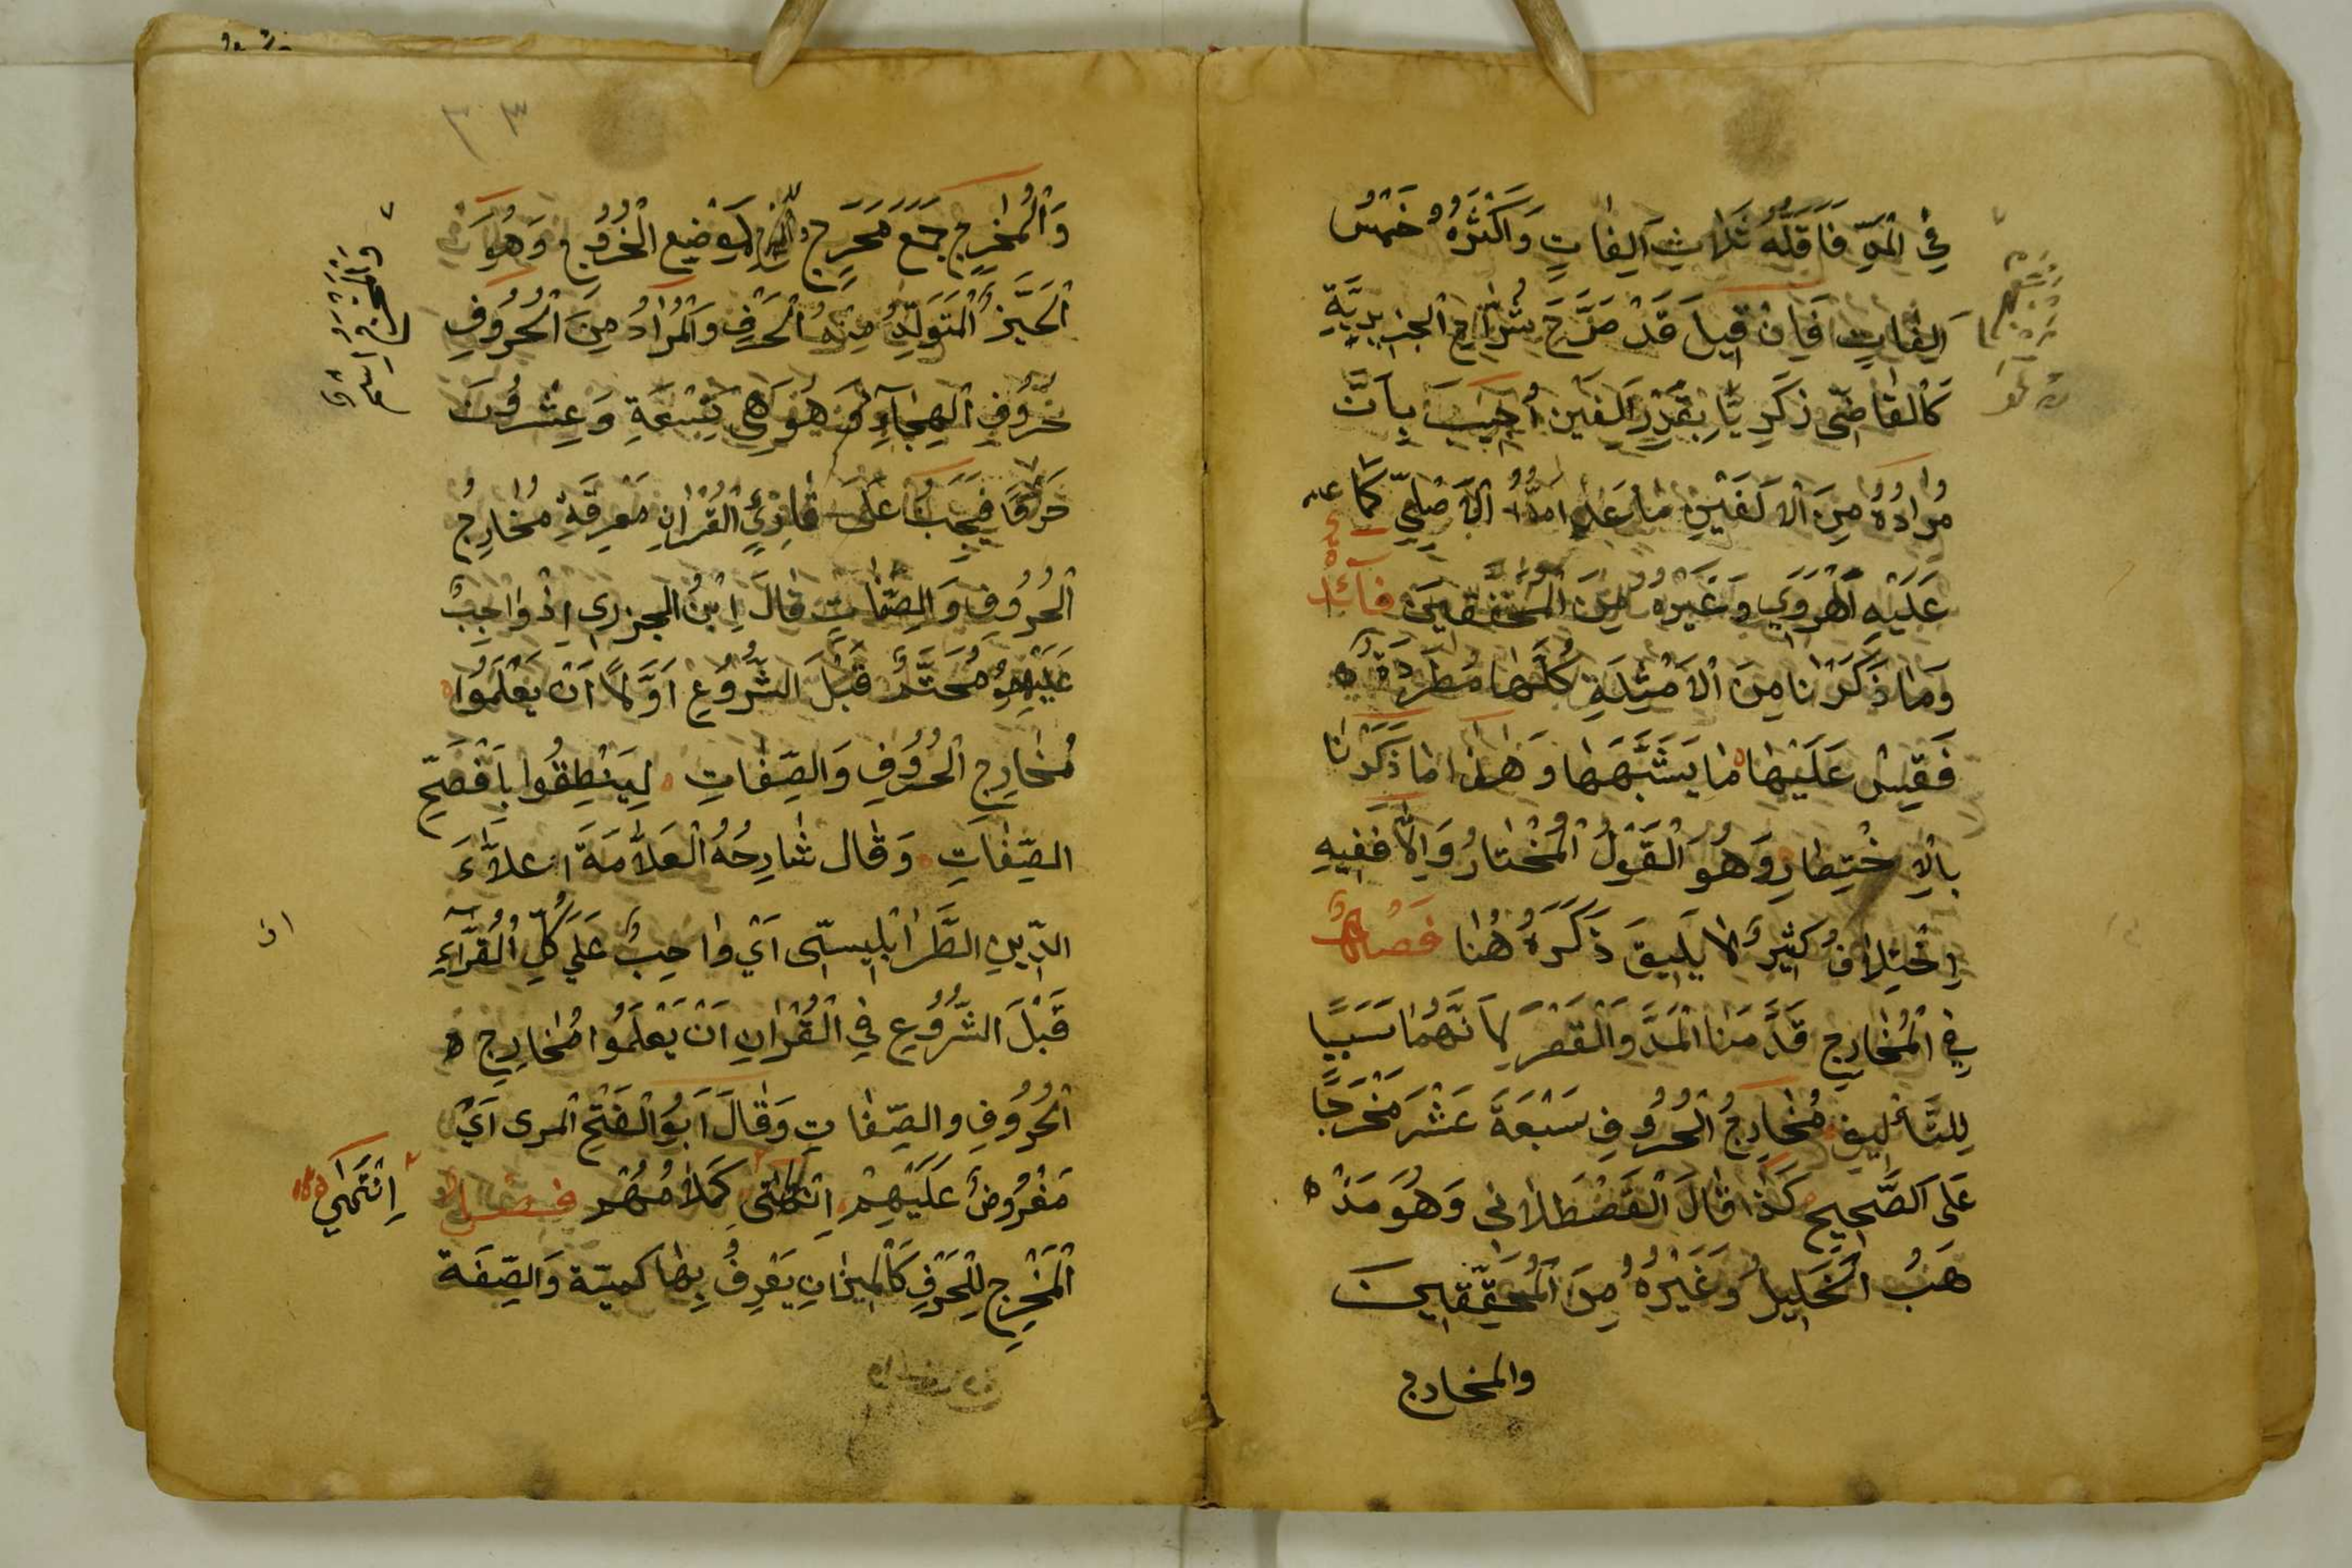 في المدِّ فَاَقَلُّهُ ثَلَاثِ اَلِفَاتٍ وَاَكْثَرُهُ خَمْسُ
اَلِفَاتٍ فَاِنْ قيلَ قَدْ صَرَّحَ شُرّاحُ الجزريَّةِ
كَالْقَاضِى زَكَرِيَّا بِقَدْرِ اَلْفَين اُجيبَ بِاَنَّ
مُرادُهُ مِنَ الْاَلَفَيْنِ مَا عَدا مَدُّ الْاَصْلِيّ كَمَا
عَلَيْهِ الْهَرَوي وَغَيْرُهُ مِنَ الْمُحَقّقينَ فائدة
وَمَا ذَكَرْنَا مِنَ الْاَمْثِلَةِ كُلُّهَا مُطَرَدَةٌ
فَقِيسْ عَلَيْهَا مَا يَشَبَّهَهَا وَهٰذا مَا ذَكَرْنَا
بِالْاِخْتِصَارِ وَهُوَ الْقَوْلُ الْمُخْتَارُ وَاِلَّا فَفيهِ
اِخْتِلَافٌ كَثيرٌ لَا يَليقَ ذَكَرَهُ هُنَا فَصْلٌ
في الْمَخَارِجِ قَدَّمَنَا الْمَدَّ وَالْقَصْرَ لِاَنَّهُمَا سَبَبًا
لِلتَّأْليفِ مَخَارِجُ الْحُرُوفِ سَبْعَةَ عَشَرَ مَخْرَجًا
عَلَى الصَّحيحِ كَذَا قَالَ الْقَصْطَلَانى وَهُوَ مَذْ
هَبُ الْخَليلُ وَغَيْرُهُ مِنَ الْمُحَقِّقينَ
والمخارج
وَالْمَخَارِج جَمْع مَخْرَجِ لِمَوْضِعِ الْخُرُوجِ وَهُوَ
الْحَيّزُ الْمُتَوَلِّدُ مِنْهُ الْحَرْفِ وَالْمُرَادُ مِنَ الْحُرُوفِ
حُرُوفِ الْهِجَاءِ وَهُوَ هِىَ تِسْعَةِ وَعِشْرُونَ
حَرْفًا فَيَجِبُ عَلَى قَارِئِ الْقُرْاٰنِ مَعْرِفَةِ مَخَارِجُ
الْحُرُوفِ وَالصِّفَاتِ قَالَ اِبْنُ الجزرى اِذْ وَاجِبٌ
عَلَيْهِمُ مُحَتَّمُ قَبْلَ الشُّرُوعِ اَوَّلًا اَنْ يَعْلَمُوا
مَخَارِجِ الْحُرُوفِ وَالصِّفَاتِ لِيَنْطِقُوا بِاَفْصَحِ
الصِّفَاتِ وَقَال شَارِحُهُ الْعَلَّامَةَ علاَّءَ
الدّينِ الطَّرَابُلِيسىّ اَيْ وَاجِبٌ عَلَي كُلِّ الْقُرَّاءِ
قَبْلَ الشُّرُوعِ فِي الْقُرْاٰنِ اَنْ يَعْلَمُوا مَخَارِجِ
الْحُرُوفِ وَالصِّفَاتِ وَقَالَ اَبُو الْفَتْحِ المرى اَيْ
مَفْرُوضٌ عَلَيْهِمْ اِنْتَهٰى كَلَامُهُمْ فصل
اِنْتَهٰي
الْمَخْرَجِ لِلْحَرْفِ كَالْميزَانِ يَعْرِفُ بِهَا كميتة وَالصِّفَة